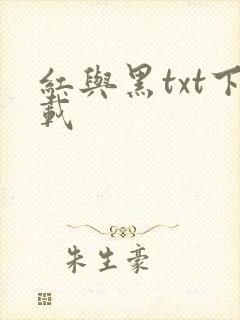 紅與黑txt下
載
朱生豪